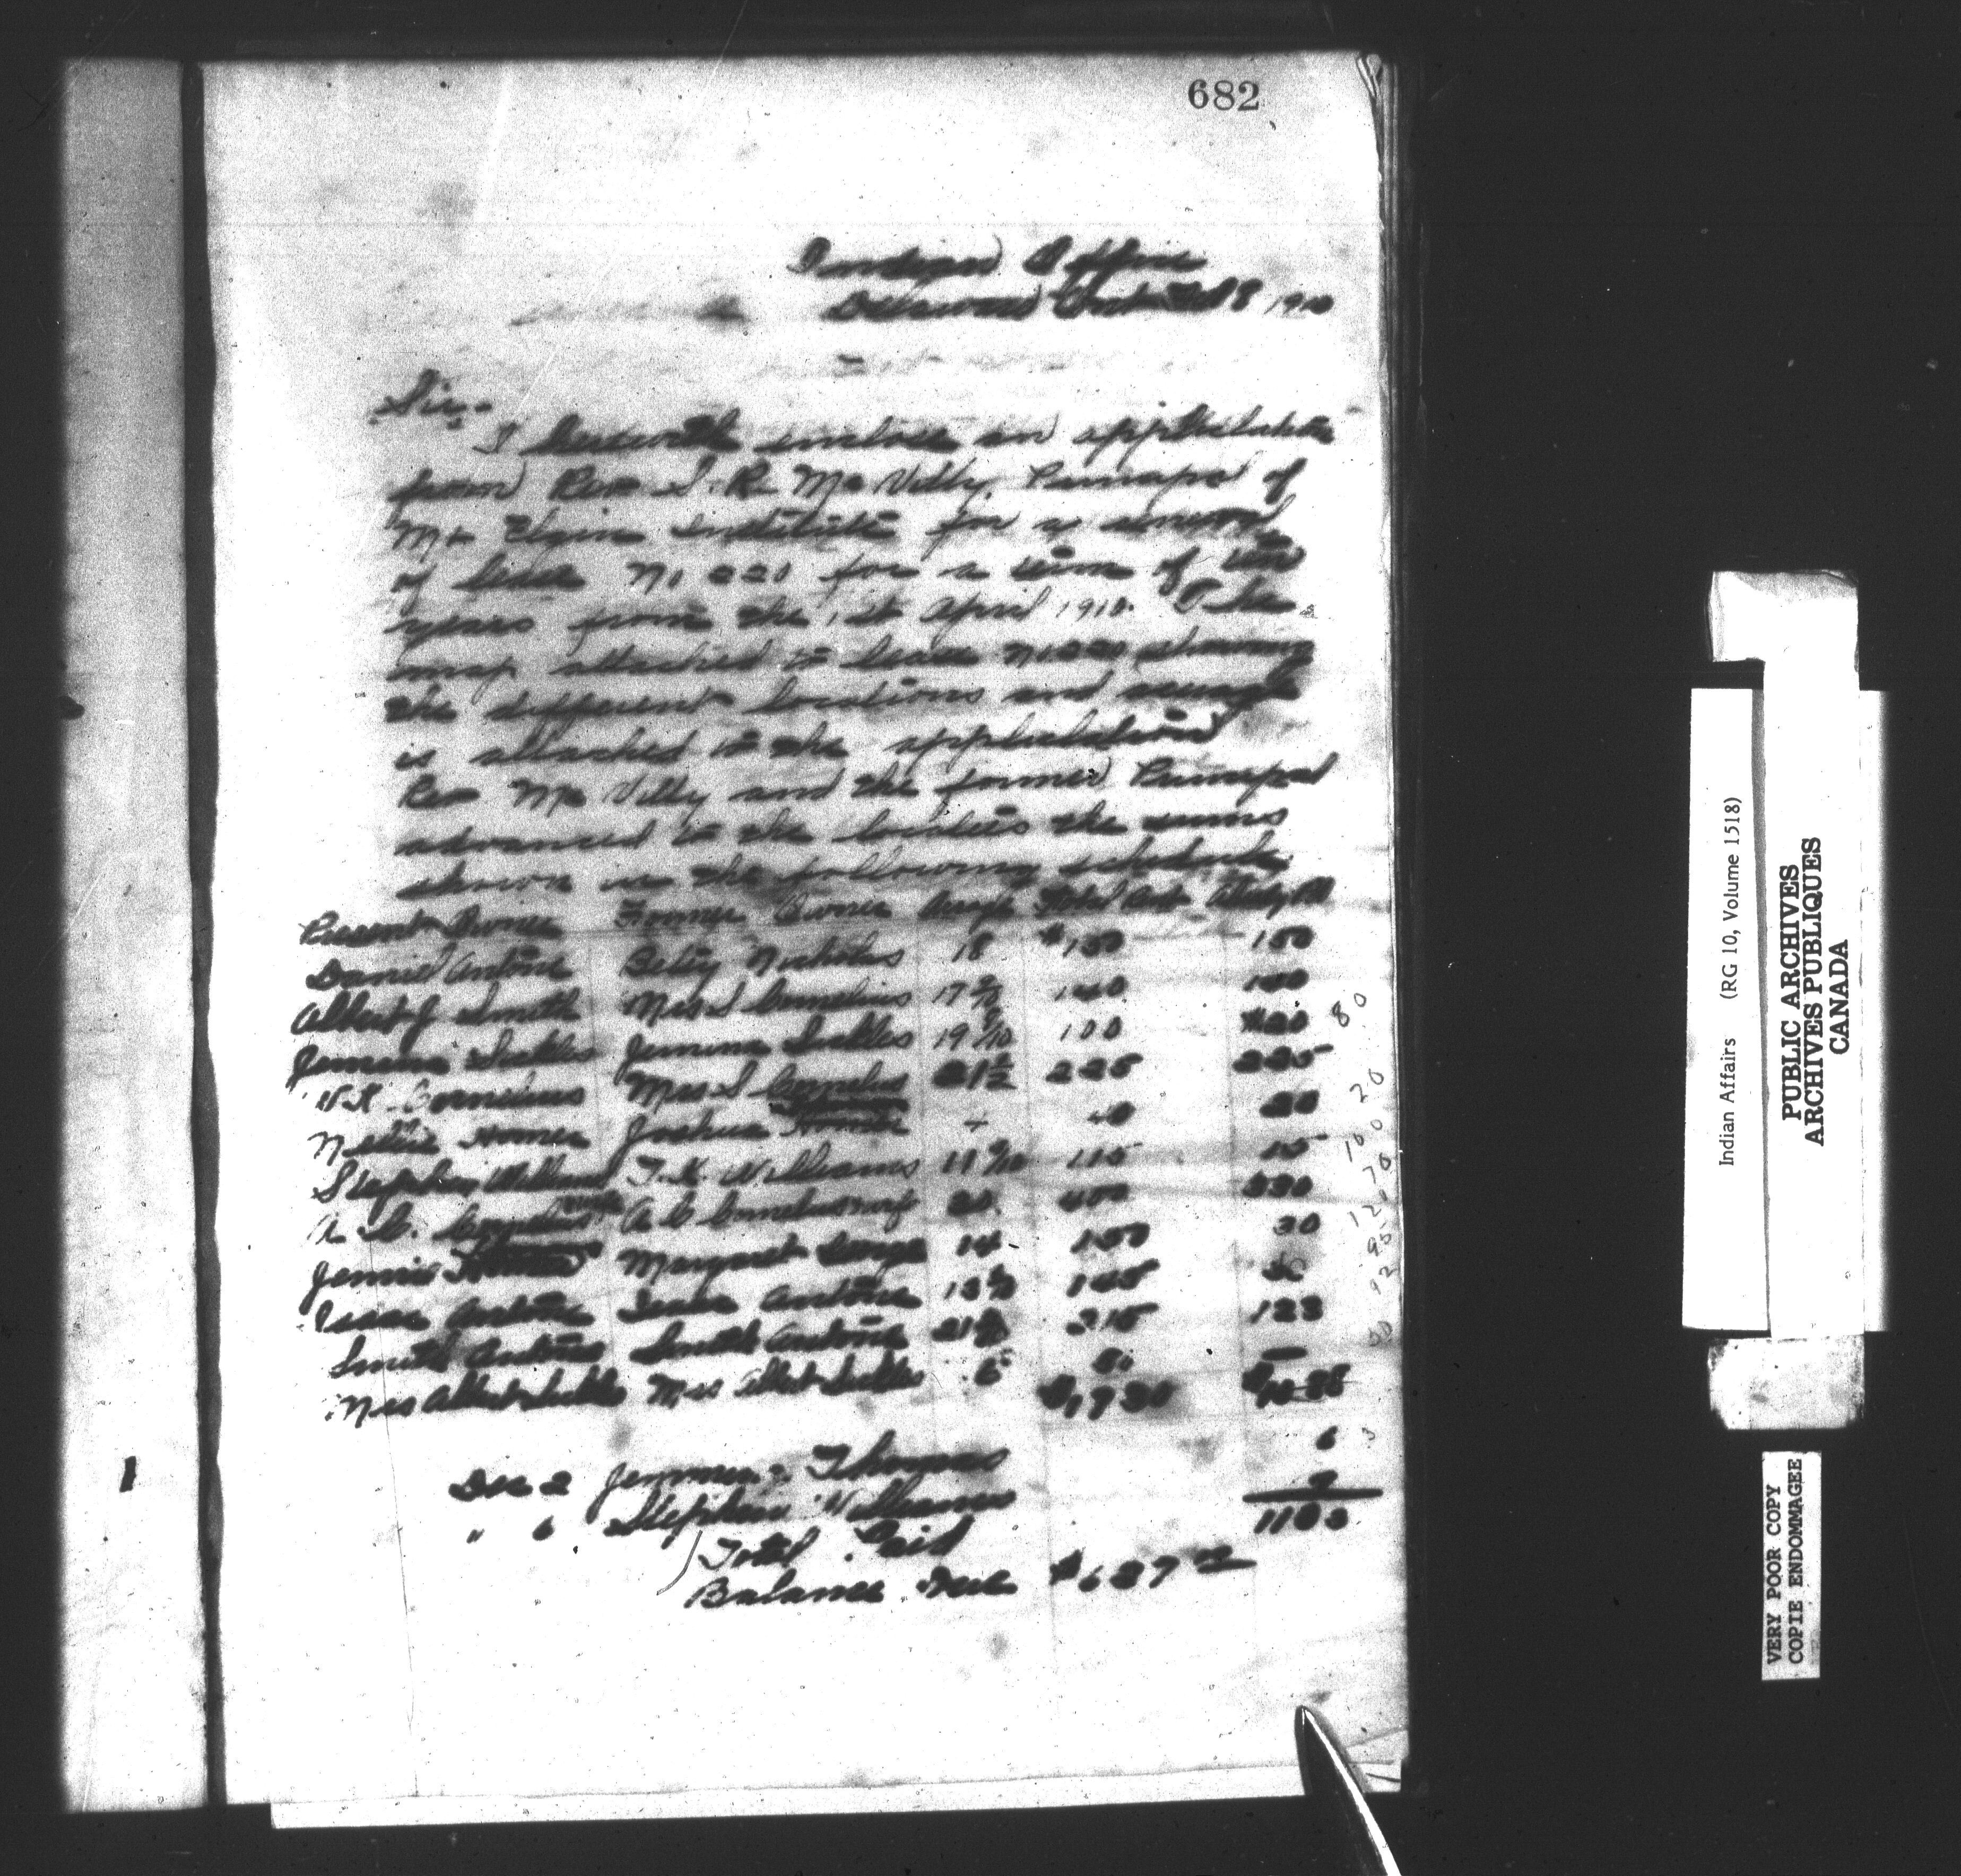 682
Indian Office
Delaware Ont. Feb 8 1910
Sir:-
I herewith enclose an application
from Rev. S. R. McVitty, Principal of
Mt Elgin Institute for a renewal
of lease No 220 for a term of ten
years from the 1st April 1910. The
map attached to lease No 220 showing
the different locations and acreage
is attached to the application
Rev McVitty and the former Principal
advanced to the locatees the sums
shown in the following schedule.
Present Owner Former Owner Acreage Total Amt Already Pd
Daniel Antone Betsy Nicholas 18 $180 180
Albert J Smith Mrs S Cornelius 140 140
Jemima Sickles Jemima Sickles 100 $20
Cornelius Mrs S Cornelius 21½ 225 225
Nellie Homer Joshua 20
Stephen Williams Williams 115 15
A. C. Cornelius A C Cornelius 20 400
Jennie Margaret George 14 150 30
Isaac Antone Isaac Antone 145
Smith Antone Smith Antone 215 123
Mrs Albert Sickles Mrs Albert Sickles 6 —
$1730 $1088
Dec 2 Thomas 6
" 6 Stephen Williams 9
Total Paid 1103
Balance due $627 00
Indian Affairs (RG 10, Volume 1518)
PUBLIC ARCHIVES
ARCHIVES PUBLIQUES
CANADA
VERY POOR COPY
COPIE ENDOMMAGEE